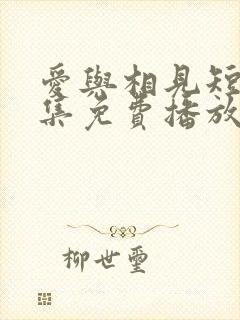 愛與相見短
集免費播放
柳世璽